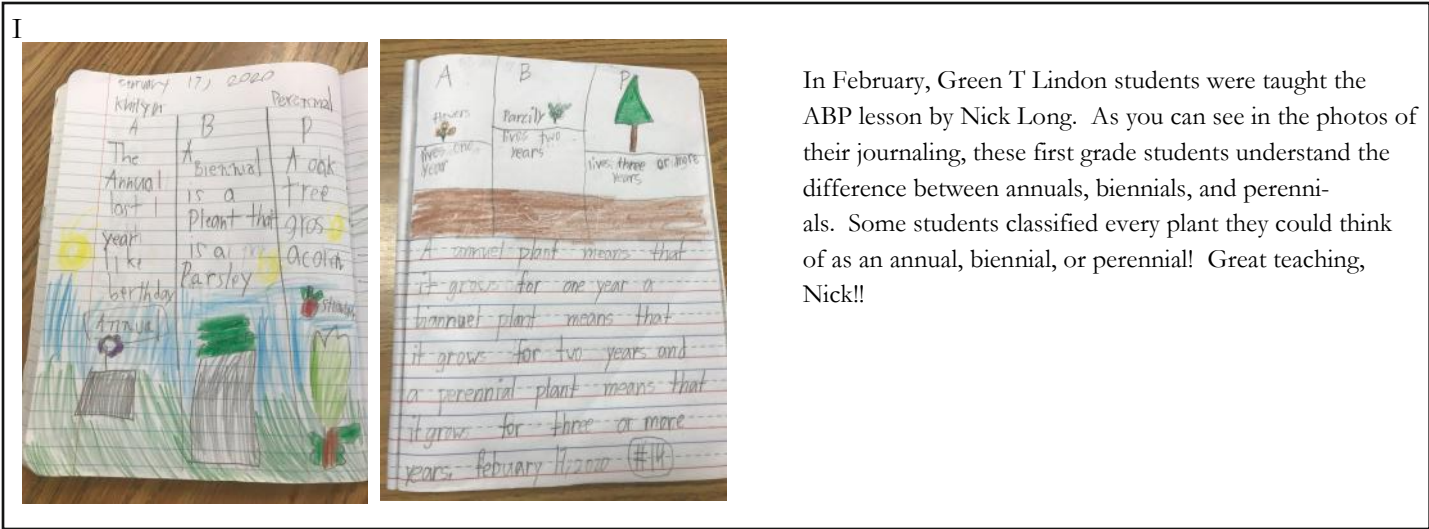 I
February 17, 2020
Khelyn
Perennial
A
B
P
The
Annual
last 1
year
like
berthday
Annual
A
Biennial
is a
Pleant that
is a
Parsley
A oak
tree
gros
acolen
A
B
P
flowers
lives one
year
Parcily
lives two
years
lives three or more
years
A annuel plant means that
it grows for one year a
biannuel plant means that
it grows for two years and
a perennial plant means that
it grows for three or more
years. febuary 17, 2020 #14
In February, Green T Lindon students were taught the
ABP lesson by Nick Long. As you can see in the photos of
their journaling, these first grade students understand the
difference between annuals, biennials, and perenni-
als. Some students classified every plant they could think
of as an annual, biennial, or perennial! Great teaching,
Nick!!